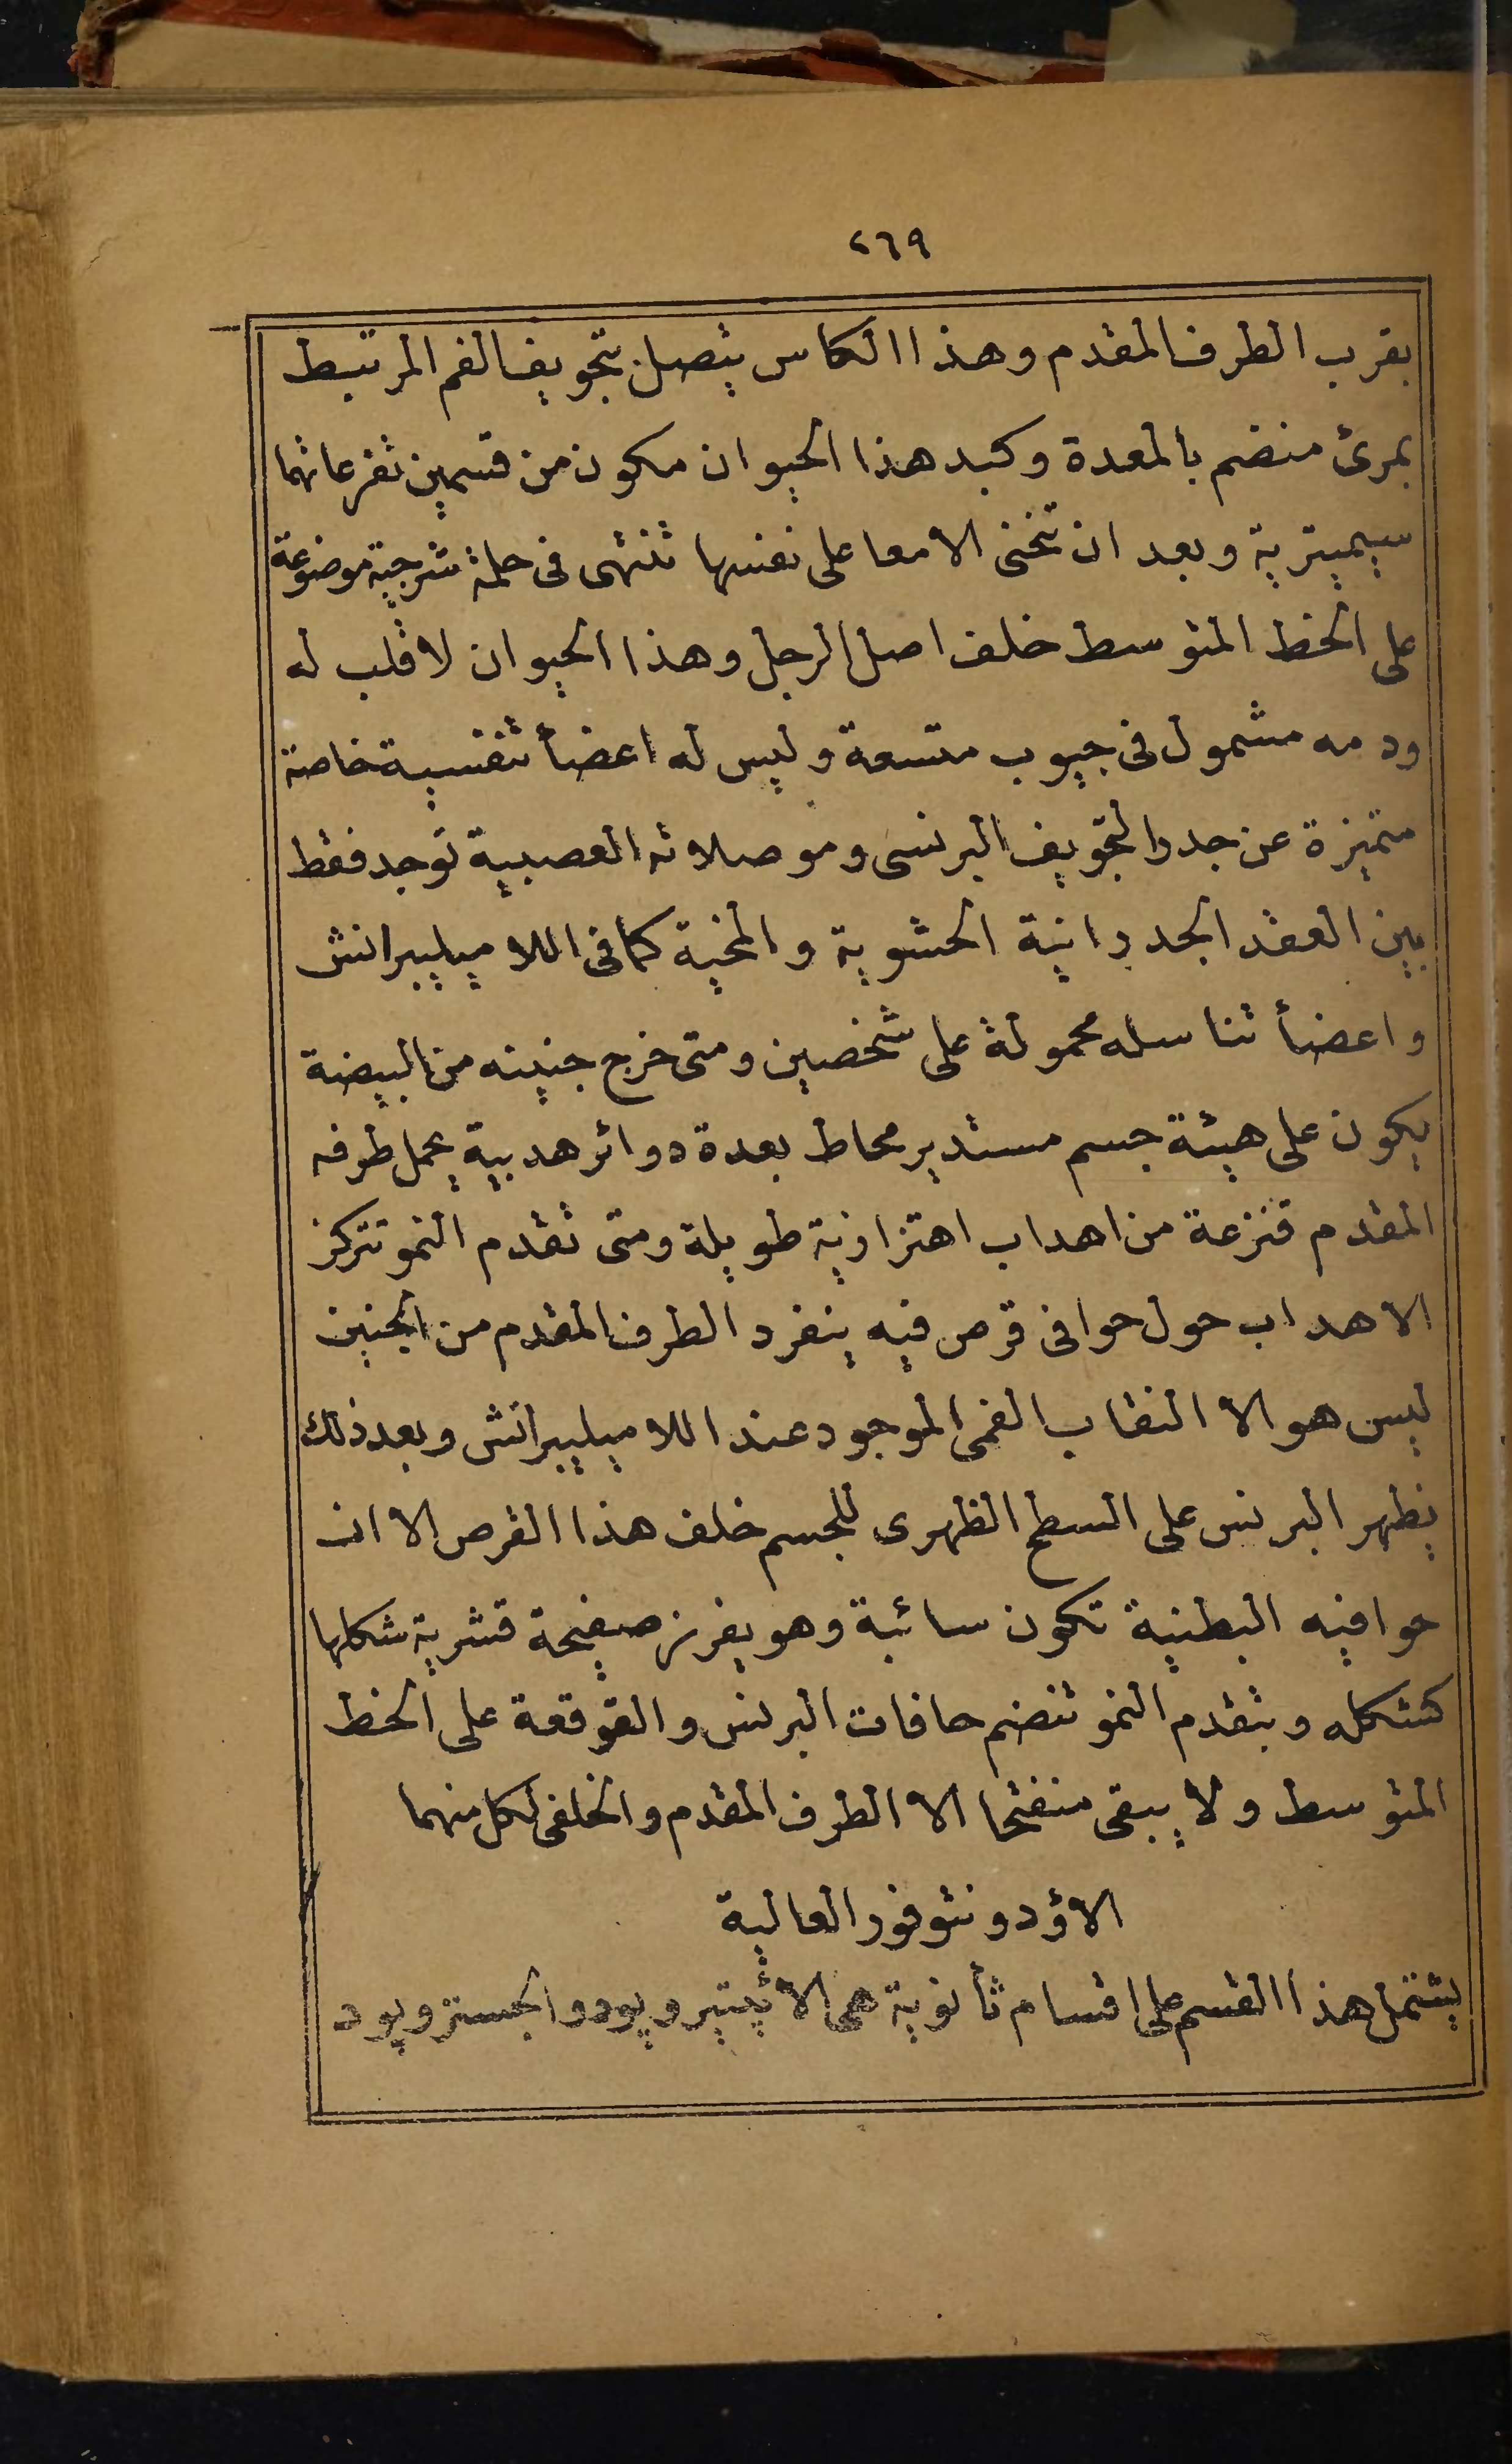 ٢٦٩
بقرب الطرف المقدم وهذا الكاس يتصل بتجويف الفم المرتبط
بمرئ منضم بالمعدة وكبد هذا الحيوان مكون من قسمين تفرعاتهما
سيميترية وبعد ان تنحنى الامعا على نفسها تنتهى فى حلمة شرجية موضوعة
على الخط المتوسط خلف اصل الرجل وهذا الحيوان لا قلب له
ودمه مشمول فى جيوب متسعة وليس له اعضأ تنفسية خاصة
متميزة عن جدر التجويف البرنسى وموصلاته العصبية توجد فقط
بين العقد الجدرانية الحشوية والمخية كما فى اللاميليبرانش
واعضأ تناسله محمولة على شخصين ومتى خرج جنينه من البيضة
يكون على هيئة جسم مستدير محاط بعدة دوائر هدبية يحمل طرفه
المقدم قنزعة من اهداب اهتزازية طويلة ومتى تقدم النمو تتركز
الاهداب حول حوافى قرص فيه ينفرد الطرف المقدم من الجنين
ليس هو الا النقاب الفمى الموجود عند اللاميليبرانش وبعد ذلك
يظهر البرنس على السطح الظهرى للجسم خلف هذا القرص الا ان
حوافيه البطنية تكون سائبة وهو يفرز صفيحة قشرية شكلها
كشكله وبتقدم النمو تنضم حافات البرنس والقوقعة على الخط
المتوسط ولا يبقى منفتحا الا الطرف المقدم والخلفى لكل منهما
الاؤدونتوفور العالية
يشتمل هذا القسم على اقسام ثأنوية هى الاثيتيروپود والجستروپود